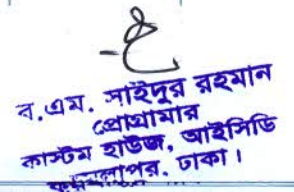 ব,এম. সাইদুর রহমান
প্রোগ্রামার
কাস্টম হাউজ, আইসিডি
ঢাকা।